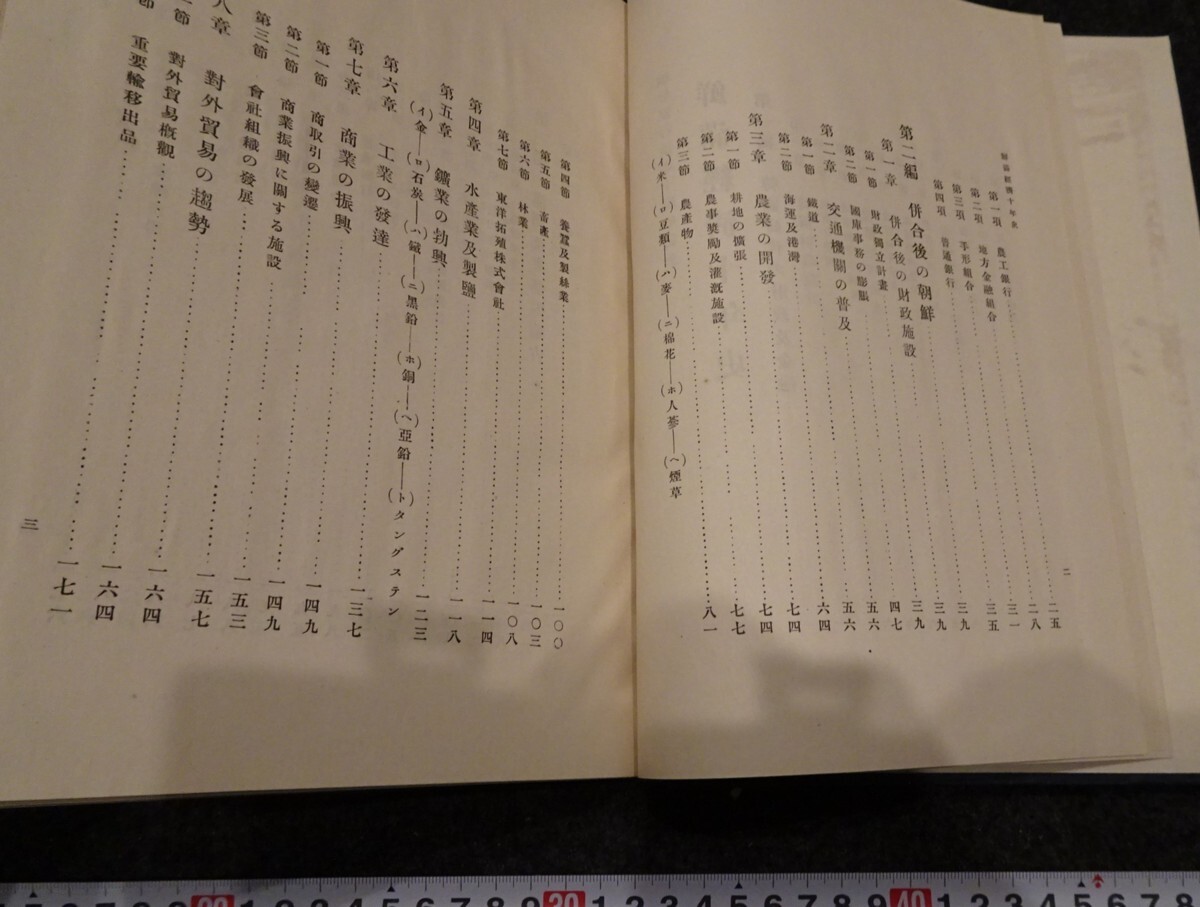 經濟十年史
二
第一項 農工銀行……二五
第二項 地方金融組合……二八
第三項 手形組合……三一
第四項 普通銀行……三五
第二編 併合後の朝鮮……三九
第一章 併合後の財政施設……三九
第一節 財政獨立計畫……三九
第二節 國庫事務の膨脹……四七
第二章 交通機關の普及……五六
第一節 鐵道……五六
第二節 海運及港灣……六四
第三章 農業の開發……七四
第一節 耕地の擴張……七四
第二節 農事奬勵及灌漑施設……七七
第三節 農產物……八一
(イ)米―(ロ)豆類―(ハ)麥―(ニ)棉花―(ホ)人蔘―(ヘ)煙草
第四節 養蠶及製絲業……一〇〇
第五節 畜產……一〇三
第六節 林業……一〇八
第七節 東洋拓殖株式會社……一一四
第四章 水產業及製鹽……一一八
第五章 鑛業の勃興……一二三
(イ)金―(ロ)石炭―(ハ)鐵―(ニ)黑鉛―(ホ)銅―(ヘ)亞鉛―(ト)タングステン
第六章 工業の發達……一三七
第七章 商業の振興……一四九
第一節 商取引の變遷……一四九
第二節 商業振興に關する施設……一五三
第三節 會社組織の發展……一五七
八章 對外貿易の趨勢……一六四
一節 對外貿易槪觀……一六四
節 重要輸移出品……一七一
三
1 2 3 4 5 6 7 8 9 30 1 2 3 4 5 6 7 8 9 40 1 2 3 4 5 6 7 8